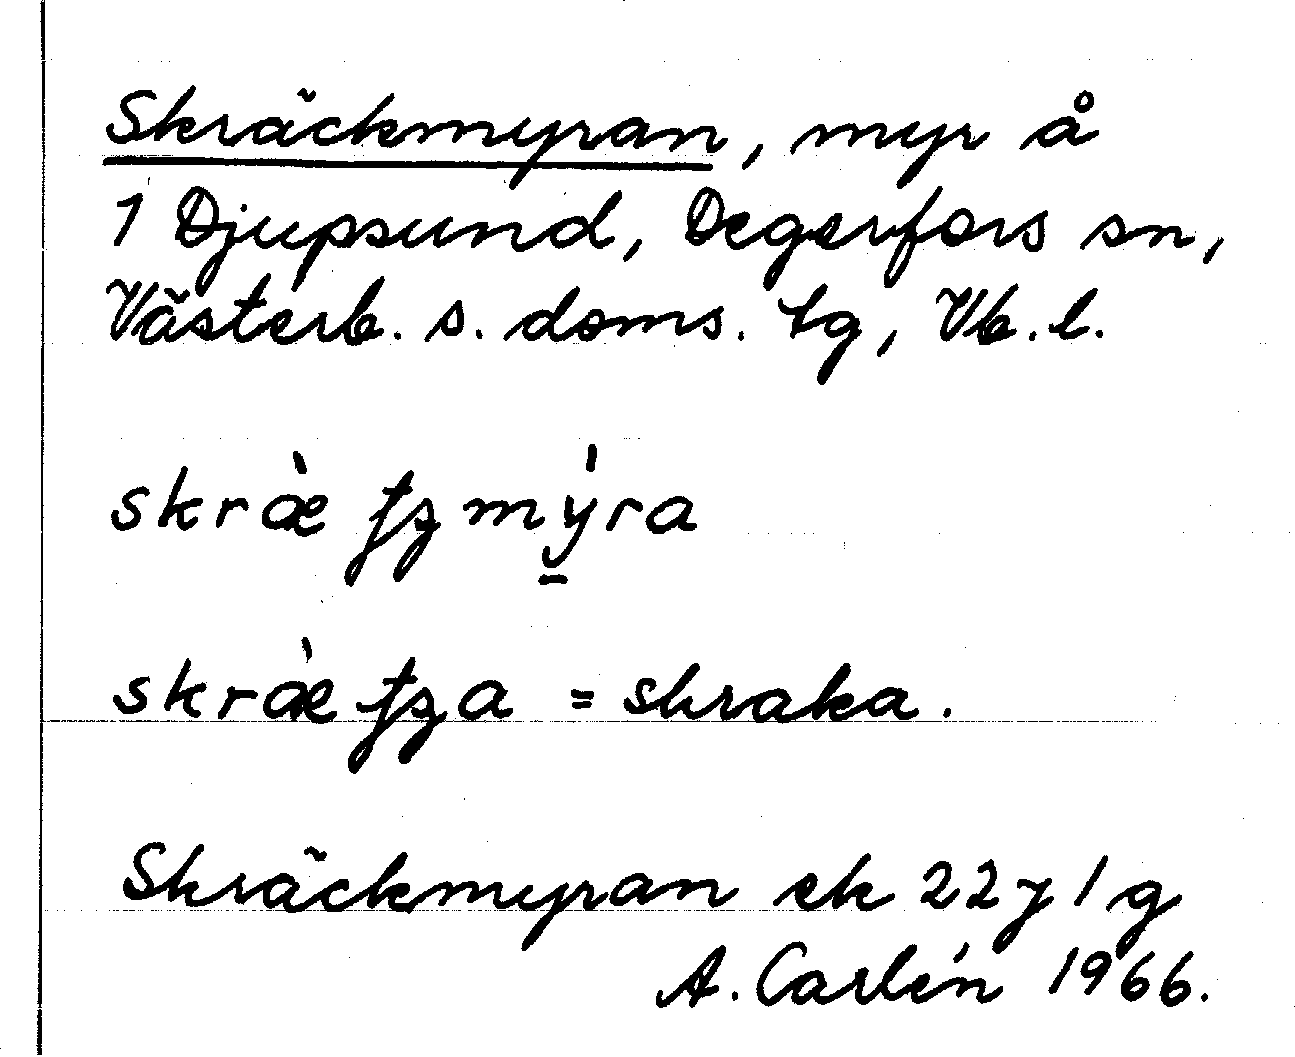 Skräckmyran, myr å
1 Djupsund, Degerfors sn,
Västerb. s. doms. tg, Vb. l.
skræ̀ʄʒmýra
skræ̀ʄʒa = skraka.
Skräckmyran ek 22 j 1 g
A. Carlén 1966.